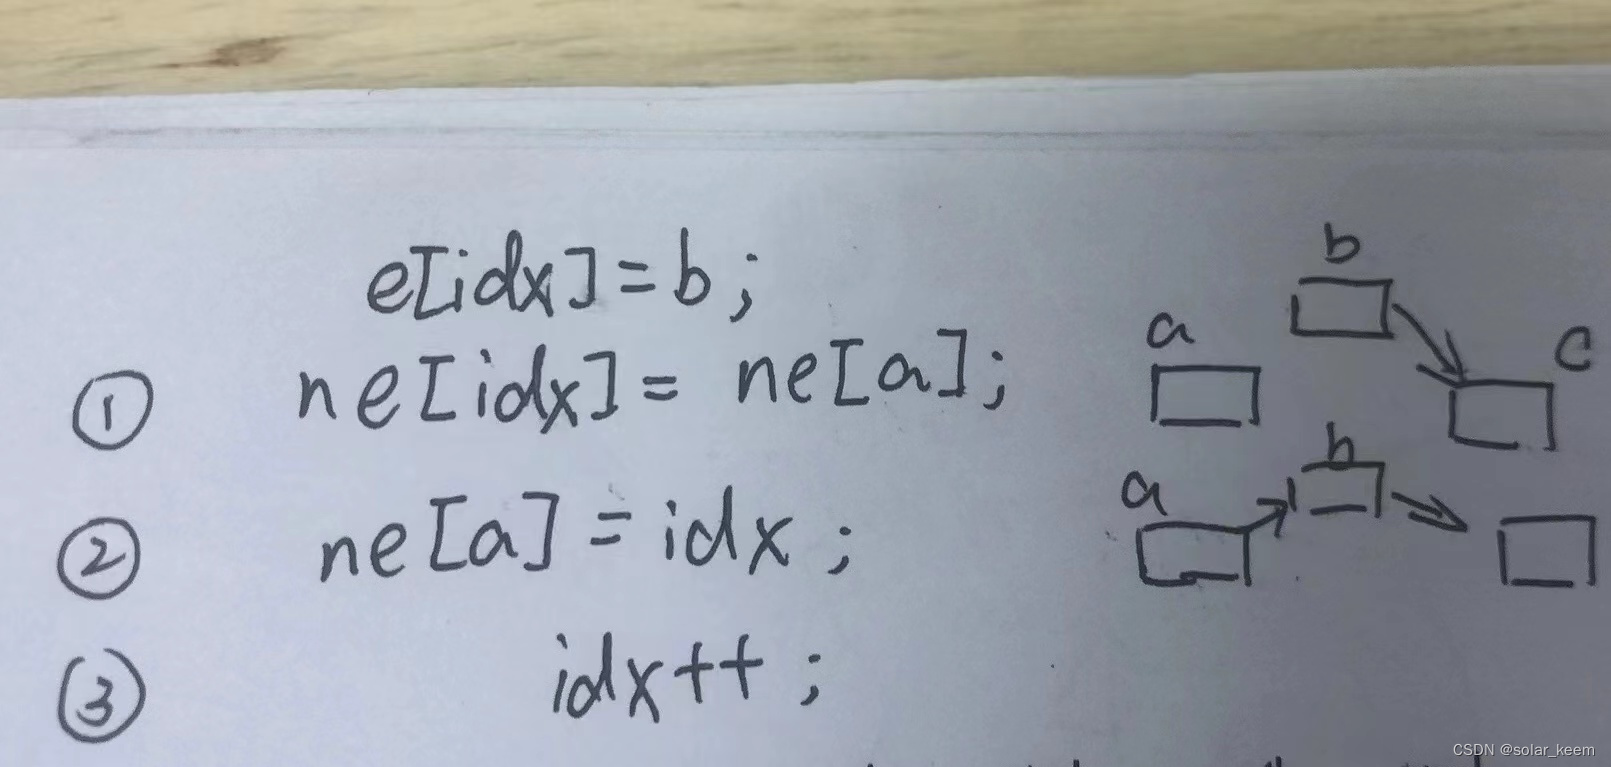 e[idx]=b;
① ne[idx]= ne[a];
② ne[a]=idx;
③ idx++;
b
a
c
b
a
CSDN @solar_keem